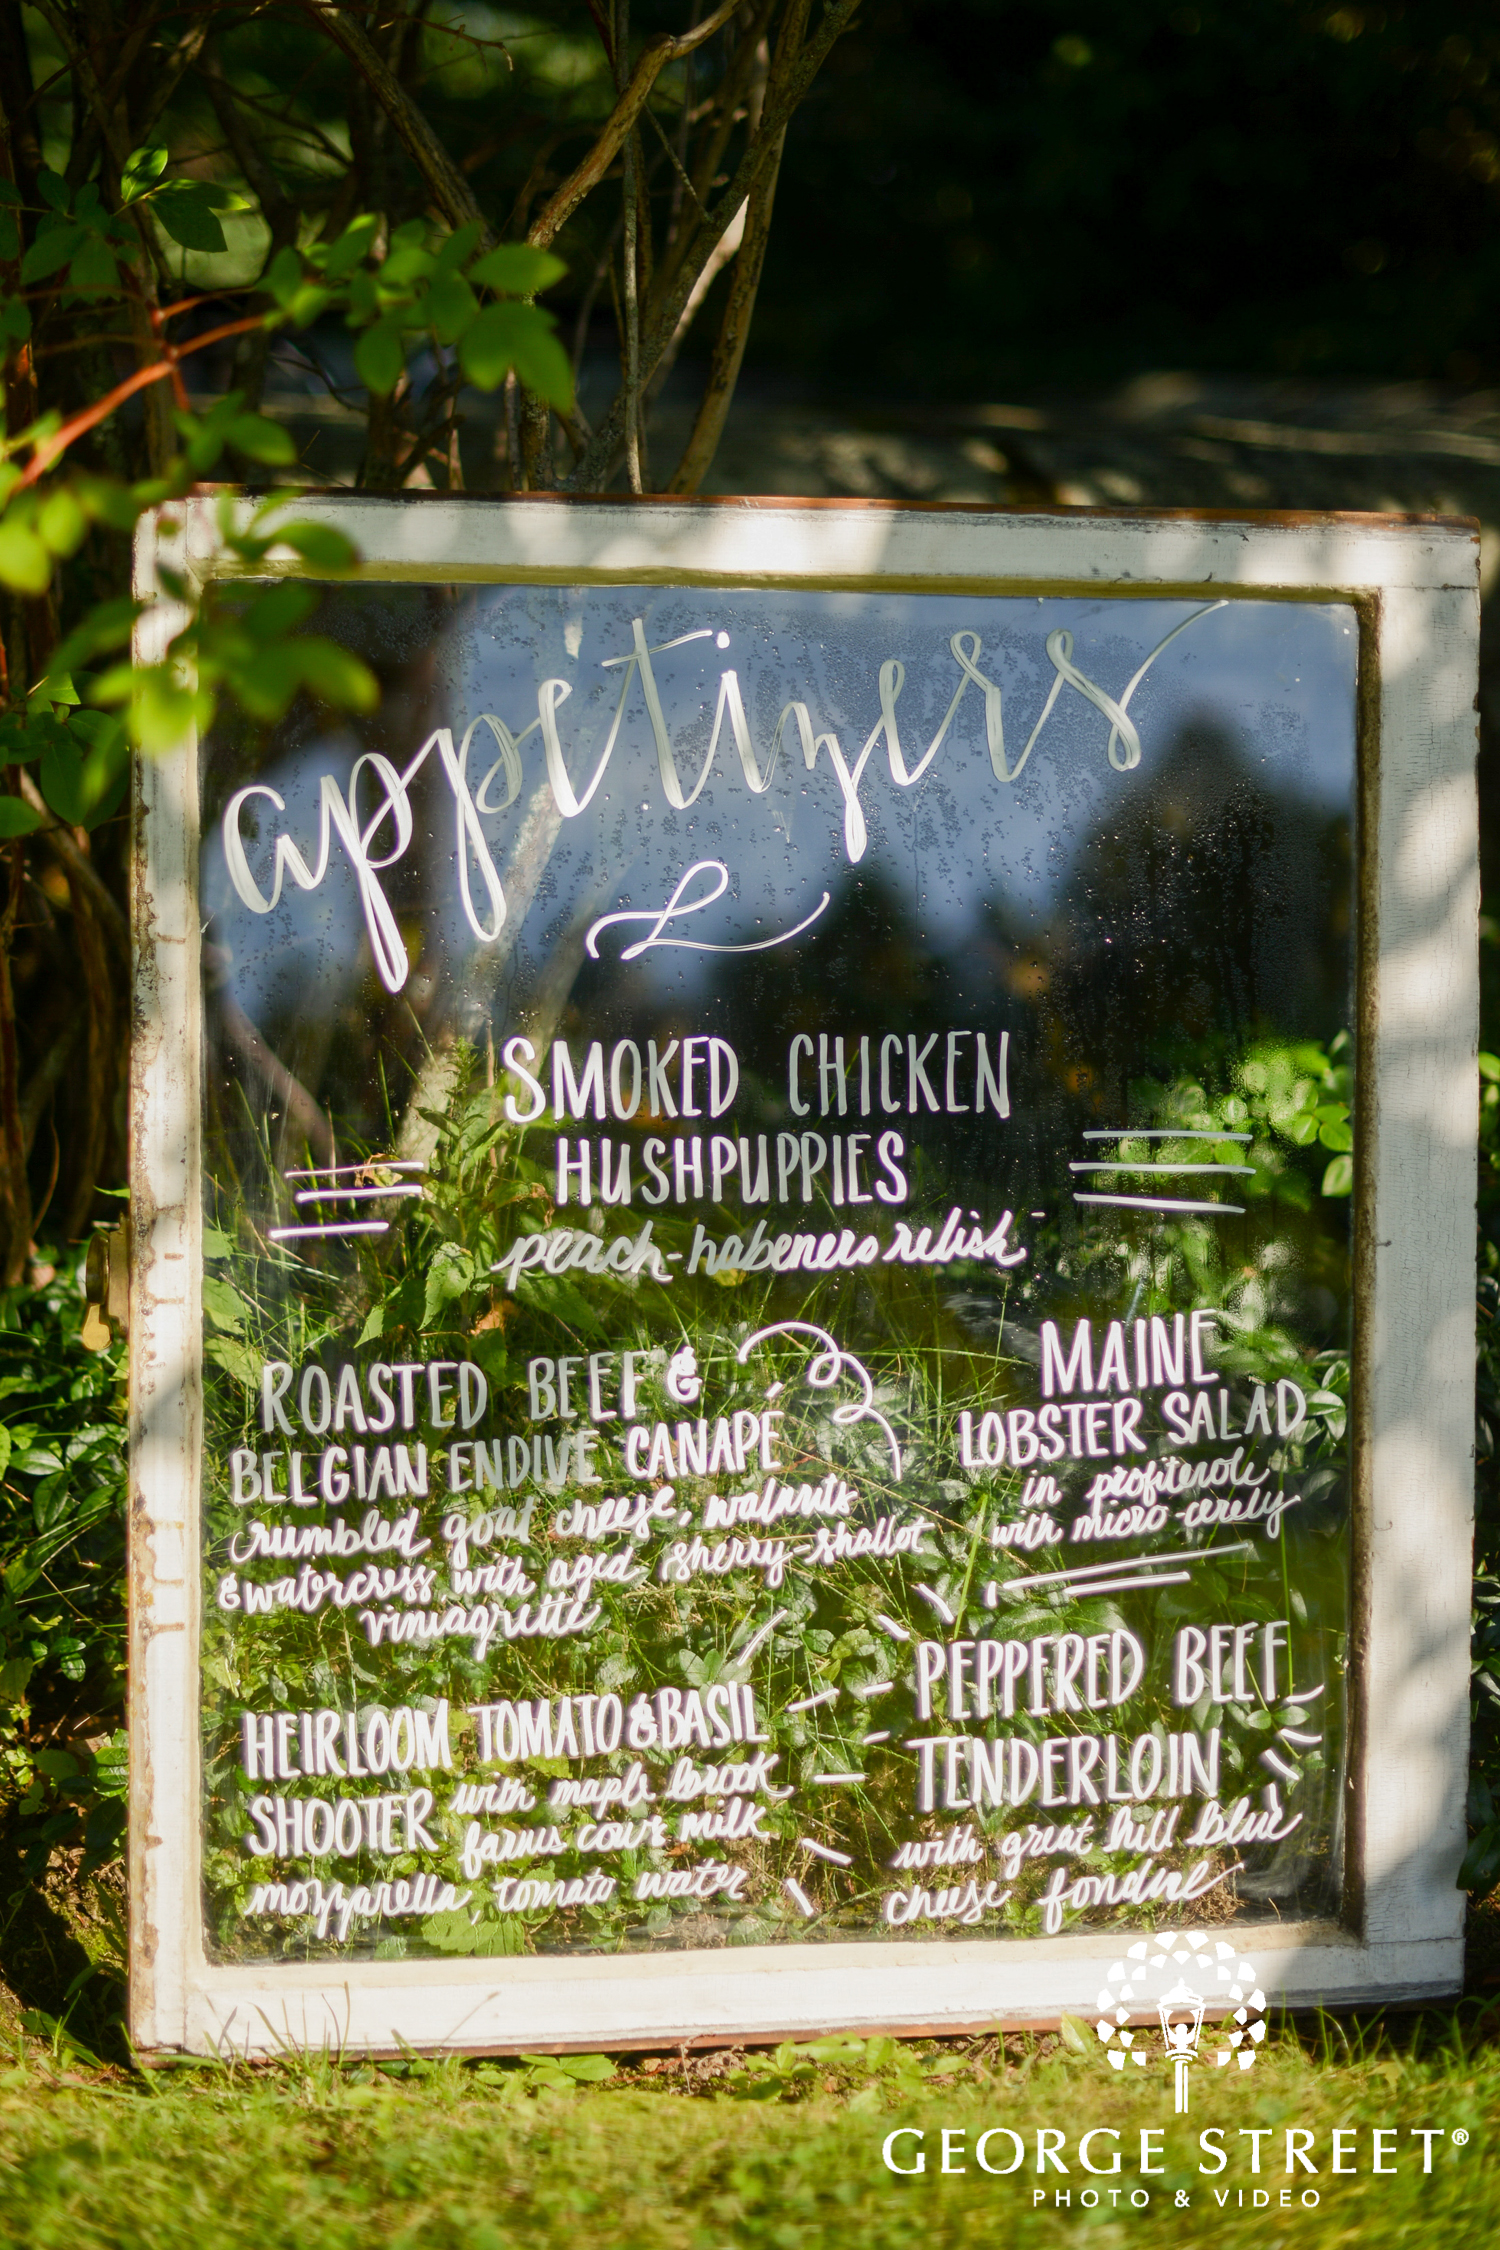 appetizers
SMOKED CHICKEN
HUSHPUPPIES
peach-habenero relish
ROASTED BEEF &
BELGIAN ENDIVE CANAPÉ
crumbled goat cheese, walnuts
& watercress with aged sherry-shallot
viniagrette
MAINE
LOBSTER SALAD
in profiterole
with micro-cerely
HEIRLOOM TOMATO & BASIL
SHOOTER with maple brook
farms cow's milk
mozzarella, tomato water
PEPPERED BEEF
TENDERLOIN
with great hill blue
cheese fondue
GEORGE STREET®
PHOTO & VIDEO